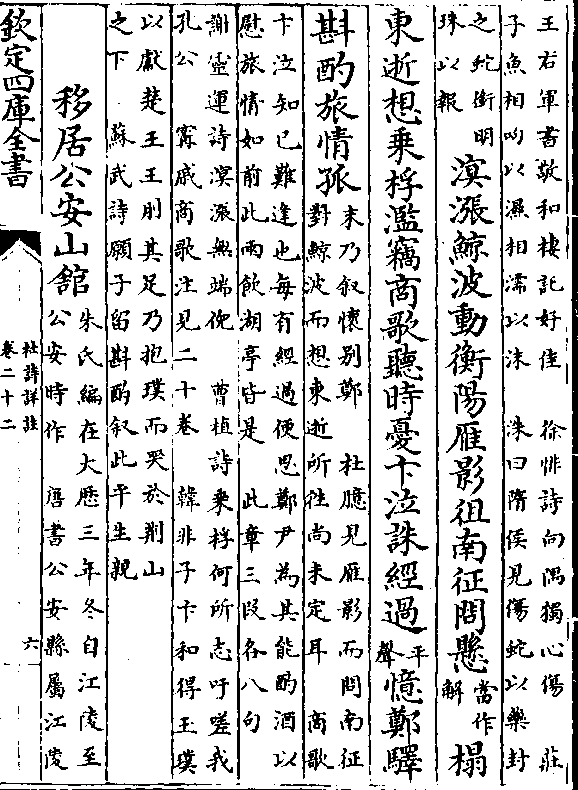 王右軍書敬和棲託好佳　徐悱詩向隅獨心傷　莊
子魚相呴以濕相濡以沫　洙曰隋侯見傷蛇以藥封
之蛇銜明
珠以報
溟漲鯨波動衡陽雁影徂南征問懸
當作
解
榻
東逝想乗桴濫竊商歌聽時憂卞泣誅經過
平
聲
憶鄭驛
斟酌旅情孤
末乃叙懷别鄭　杜臆見雁影而問南征
對鯨波而想東逝所往尚未定耳　商歌
卞泣知已難逢也每有經過便思鄭尹為其能酌酒以
慰旅情如前此兩飲湖亭皆是　此章三段各八句
謝靈運詩溟漲無端倪　曹植詩乗桴何所志吁嗟我
孔公　甯戚商歌注見二十卷　韓非子卞和得玉璞
以獻楚王王刖其足乃抱璞而哭於荆山
之下　蘇武詩願子留斟酌叙此平生親
移居公安山舘
朱氏編在大厯三年冬自江陵至
公安時作　唐書公安縣屬江陵
欽定四庫全書
杜詩詳註
卷二十二
六